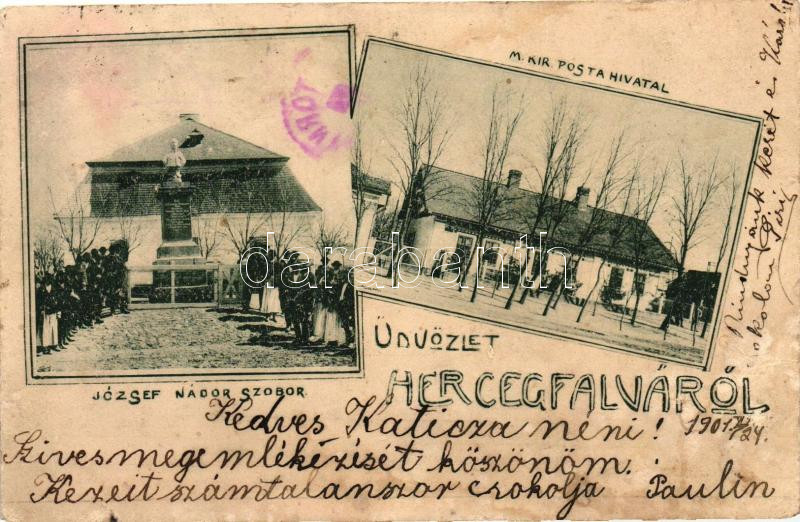 M. KIR. POSTA HIVATAL
JÓZSEF NÁDOR SZOBOR.
ÜDVÖZLET
HERCEGFALVÁRÓL
darabanth
Kedves Katicza néni! 1901
Szives megemlékézisét köszönöm.
Kezeit számtalanszor csokolja Paulin
Mindnyájunk kezét és
csokolom